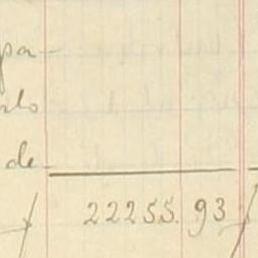 pa-
de
22255.93